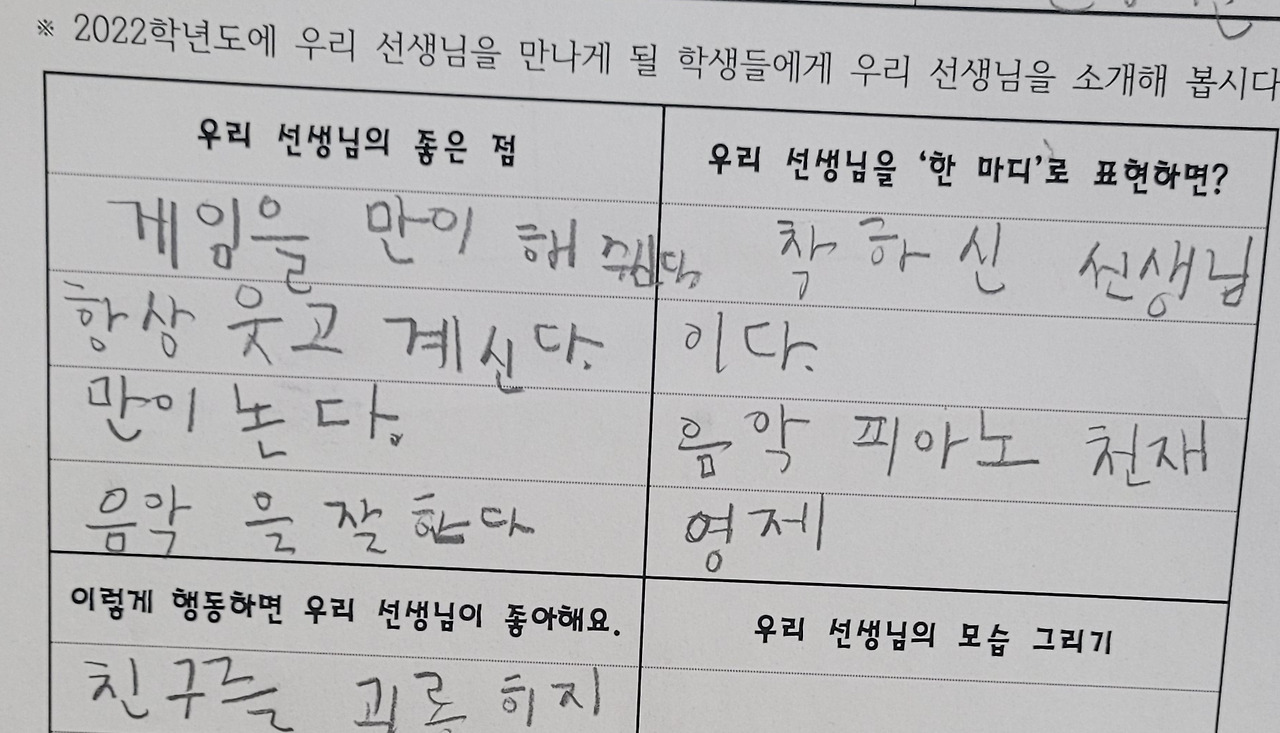 ※ 2022학년도에 우리 선생님을 만나게 될 학생들에게 우리 선생님을 소개해 봅시다
우리 선생님의 좋은 점
게임을 만이 해
항상 웃고 계신다.
만이 논다.
음악을 잘 한다
우리 선생님을 ‘한 마디’로 표현하면?
착하신 선생님
이다.
음악 피아노 천재
영제
이렇게 행동하면 우리 선생님이 좋아해요.
친구를 괴롭히지
우리 선생님의 모습 그리기